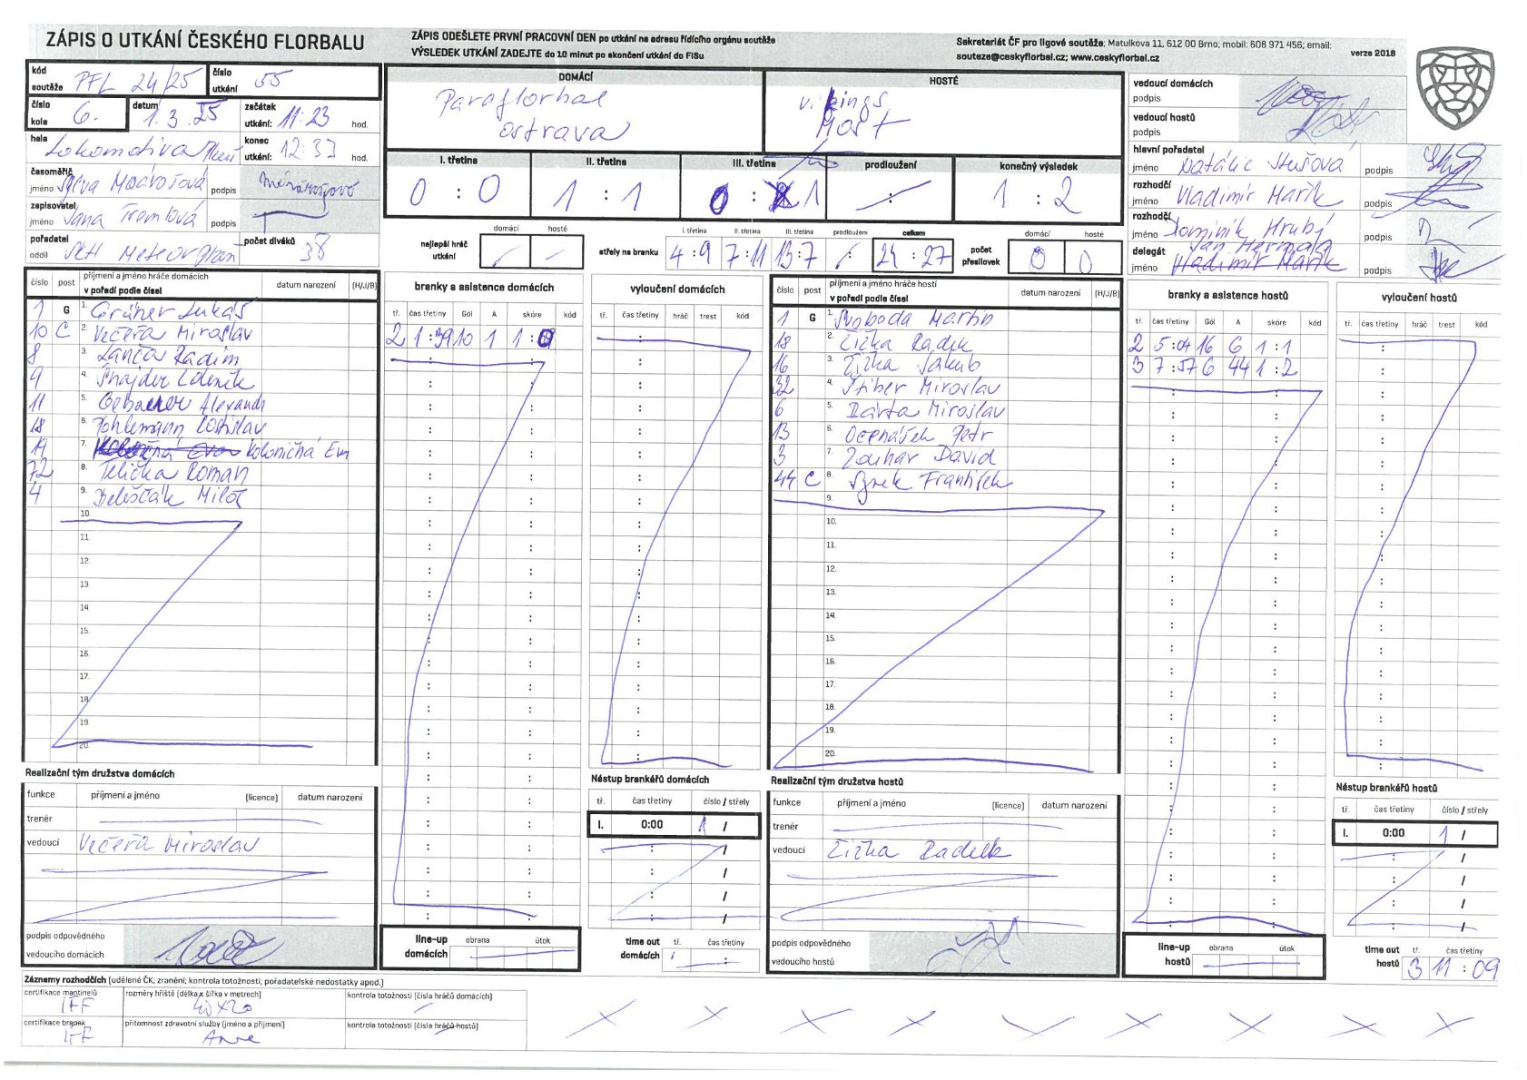 ZÁPIS O UTKÁNÍ ČESKÉHO FLORBALU
ZÁPIS ODEŠLETE PRVNÍ PRACOVNÍ DEN po utkání na adresu řídícího orgánu soutěže
VÝSLEDEK UTKÁNÍ ZADEJTE do 10 minut po skončení utkání do FISu
Sekretariát ČF pro ligové soutěže: Matulkova 11, 612 00 Brno; mobil: 608 971 456; email:
souteze@ceskyflorbal.cz; www.ceskyflorbal.cz
verze 2018
kód soutěže PFL 24/25 číslo utkání 55
číslo kola 6. datum 1.3.25 začátek utkání: 11:23 hod.
hala Lokomotiva konec utkání: 12:37 hod.
časoměřič jméno podpis
zapisovatel jméno Jana podpis
pořadatel oddíl počet diváků 38
DOMÁCÍ HOSTÉ
Paraflorbal ostrava
Vikings Most
I. třetina II. třetina III. třetina prodloužení konečný výsledek
0 : 0 1 : 1 0 : 1 - 1 : 2
nejlepší hráč utkání domácí hosté
střely na branku I. třetina II. třetina III. třetina prodloužení celkem
4 : 9 7 : 11 13 : 7 24 : 27
počet přesilovek domácí hosté 0 0
vedoucí domácích podpis
vedoucí hostů podpis
hlavní pořadatel jméno Natálie podpis
rozhodčí jméno Vladimír Mařík
rozhodčí jméno Dominik Hrubý podpis
delegát jméno Jan Vladimír Mařík podpis
číslo post příjmení a jméno hráče domácích v pořadí podle čísel datum narození (H/J/B)
1 G 1. Lukáš
10 C 2. Večeřa Miroslav
8 3. Lanča Radim
9 4. Šnajdr Zdeněk
11 5. Alexandr
18 6. Pohlemann Rostislav
19 7. Koloničná Eva
72 8. Telička Roman
4 9. Beleščák Miloš
10.
11.
12.
13.
14.
15.
16.
17.
18.
19.
20.
branky a asistence domácích
tř. čas třetiny Gól A skóre kód
2 1:39 10 1 1:0
vyloučení domácích
tř. čas třetiny hráč trest kód
číslo post příjmení a jméno hráče hostí v pořadí podle čísel datum narození (H/J/B)
1 G 1. Svoboda Martin
18 2. Žižka Radek
16 3. Žižka Jakub
32 4. Stiber Miroslav
6 5. Bárta Miroslav
13 6. Ocenášek Petr
3 7. Zouhar David
44 C 8. Synek František
9.
10.
11.
12.
13.
14.
15.
16.
17.
18.
19.
20.
branky a asistence hostů
tř. čas třetiny Gól A skóre kód
2 5:04 16 6 1:1
3 7:57 6 44 1:2
vyloučení hostů
tř. čas třetiny hráč trest kód
Realizační tým družstva domácích
funkce příjmení a jméno (licence) datum narození
trenér
vedoucí Večeřa Miroslav
podpis odpovědného vedoucího domácích
Nástup brankářů domácích
tř. čas třetiny číslo / střely
I. 0:00 1 /
line-up domácích obrana útok
time out domácích tř. čas třetiny
Realizační tým družstva hostů
funkce příjmení a jméno (licence) datum narození
trenér
vedoucí Žižka Radek
podpis odpovědného vedoucího hostů
Nástup brankářů hostů
tř. čas třetiny číslo / střely
I. 0:00 1 /
line-up hostů obrana útok
time out hostů tř. čas třetiny 3 11:09
Záznamy rozhodčích (udělené ČK; zranění; kontrola totožnosti; pořadatelské nedostatky apod.)
certifikace mantinelů IFF rozměry hřiště (délka x šířka v metrech) 40x20 kontrola totožnosti (čísla hráčů domácích)
certifikace branek IFF přítomnost zdravotní služby (jméno a příjmení) Ano kontrola totožnosti (čísla hráčů hostů)